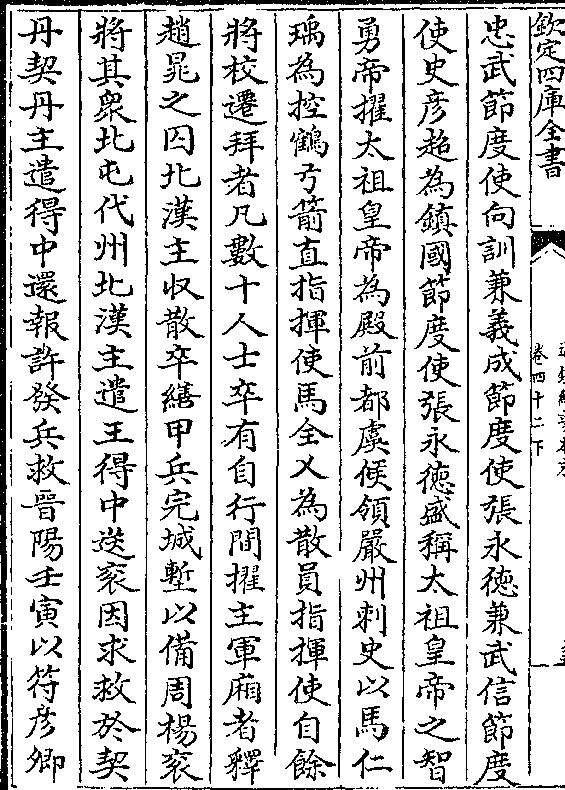 欽定四庫全書
卷四十二下
忠武節度使向訓兼義成節度使張永德兼武信節度
使史彦超為鎮國節度使張永德盛稱太祖皇帝之智
勇帝擢太祖皇帝為殿前都虞候領嚴州刺史以馬仁
瑀為控鶴弓箭直指揮使馬全乂為散員指揮使自餘
將校遷拜者凡數十人士卒有自行間擢主軍廂者釋
趙晁之囚北漢主收散卒繕甲兵完城塹以備周楊衮
將其衆北屯代州北漢主遣王得中送衮因求救於契
丹契丹主遣得中還報許發兵救晉陽壬寅以符彦卿